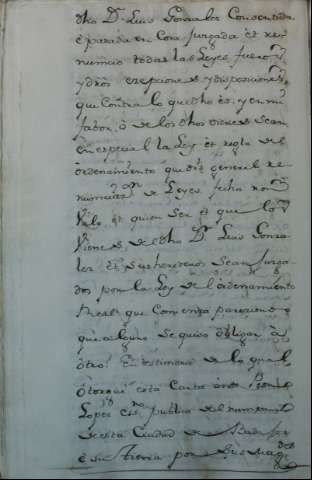 dho Dn Luis Gonzales Consentida
é pasada en Cosa Juzgada et re
nuncio todas las Leyes, fueros
y dros, exepciones y disposiciones
que Contra lo que dho es, y en mi
fabor, ó de los dhos vienes sean
en especial la Ley et regla del
ordenamiento que diz general re
nunciaon de Leyes fecha non
Vala et quiero ser et que los
Vienes del dho Dn Luis Gonza
les et sus herederos sean Juzga
dos por la Ley del Ordenamiento
Real que Comienza pareciendo
que alguno se quiso obligar á
otro. En testimonio de lo qual
otorgué esta Carta ante
Lopes Esno publico del numero
de esta Ciudad de
é su tierra por